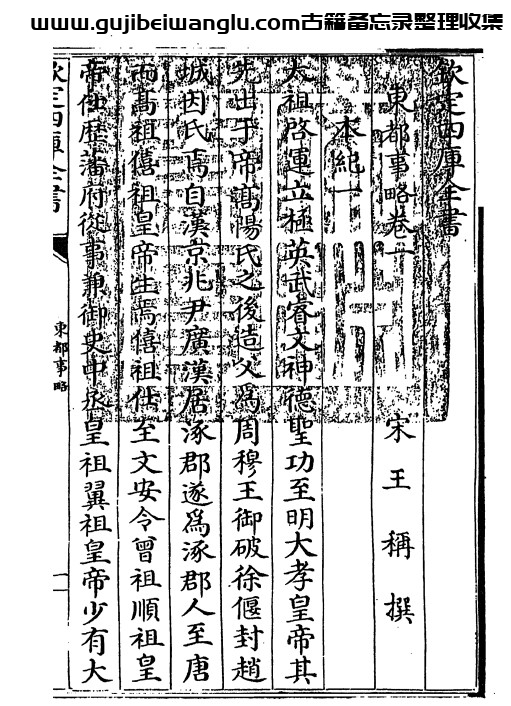 www.gujibeiwanglu.com古籍备忘录整理收集
欽定四庫全書
東都事略卷一
宋 王 稱 撰
本紀一
太祖啓運立極英武睿文神德聖功至明大孝皇帝其
先出于帝髙陽氏之後造父爲周穆王御破徐偃封趙
城因氏焉自漢京兆尹廣漢居涿郡遂爲涿郡人至唐
而髙祖僖祖皇帝生焉僖祖仕至文安令曾祖順祖皇
帝仕歴藩府從事兼御史中丞皇祖翼祖皇帝少有大
欽定四庫全書
東都事略
一